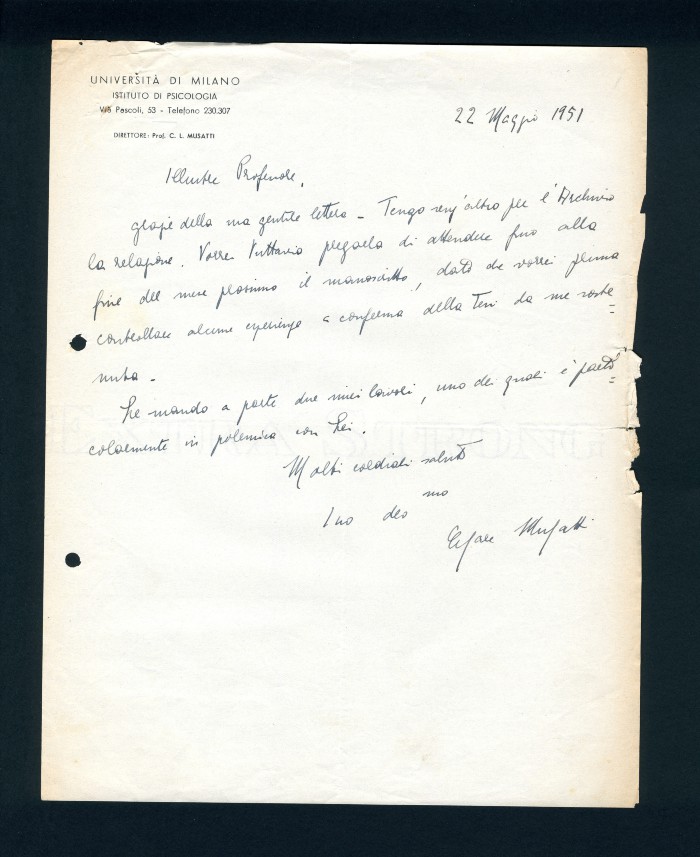 UNIVERSITÀ DI MILANO
ISTITUTO DI PSICOLOGIA
Via Pascoli, 53 - Telefono 230.307
DIRETTORE: Prof. C. L. MUSATTI
22 Maggio 1951
Illustre Professore,
grazie della sua gentile lettera - Tengo senz'altro per l'Archivio
la relazione. Vorrei tuttavia pregarla di attendere fino alla
fine del mese prossimo il manoscritto, dato che vorrei prima
controllare alcune esperienze a conferma della Tesi da me soste=
nuta -
Le mando a parte due miei lavori, uno dei quali è parti=
colarmente in polemica con Lei.
Molti cordiali saluti
Suo dev mo
Cesare Musatti